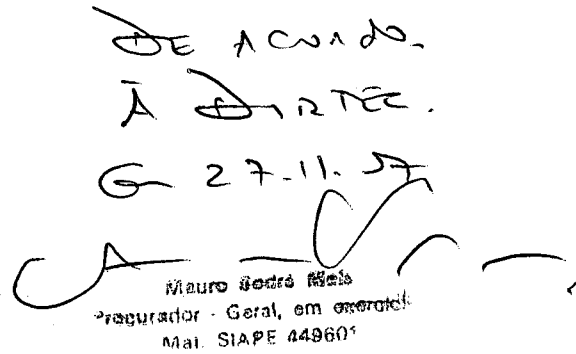 DE ACORDO.
À DIRTEC.
Em 27.11.97
Mauro Sodré Maia
Procurador - Geral, em exercício
Mat. SIAPE 449601